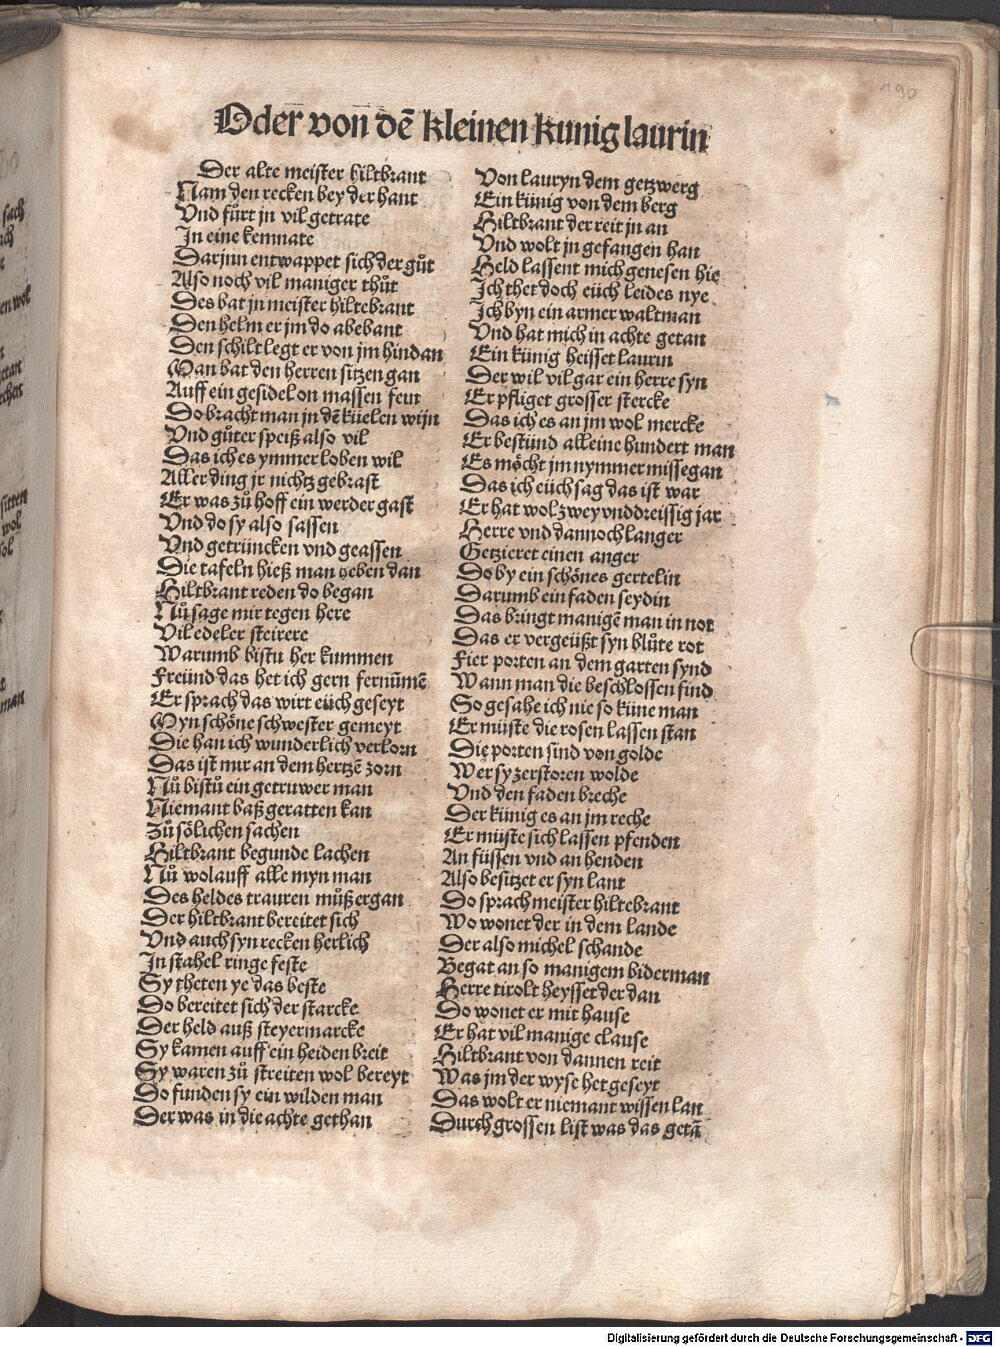 190
Oder von dē kleinen kunig laurin
Der alte meister hiltbrant
Nam den recken bey der hant
Vnd fůrt jn vil getrate
In eine kemnate
Darjnn entwappet sich der gůt
Also noch vil maniger thůt
Des bat jn meister hiltebrant
Den helm er jm do abebant
Den schilt legt er von jm hindan
Man bat den herren sitzen gan
Auff ein gesidel on massen fein
Do bracht man jn dē küelen wijn
Vnd gůter speiß also vil
Das ich es ymmer loben wil
Aller ding jr nichtz gebrast
Er was zů hoff ein werder gast
Vnd do sy also sassen
Vnd getrüncken vnd geassen
Die tafeln hieß man heben dan
Hiltbrant reden do began
Nů sage mir tegen here
Vil edeler steirere
Warumb bistu her kummen
Freünd das het ich gern fernūmē
Er sprach das wirt eüch geseyt
Myn schöne schwester gemeyt
Die han ich wunderlich verlorn
Das ist mir an dem hertzē zorn
Nů bistů ein getruwer man
Niemant baß geratten kan
Zů sölichen sachen
Hiltbrant begunde lachen
Nů wolauff alle myn man
Des heldes trauren můß ergan
Der hiltbrant bereitet sich
Vnd auch syn recken herlich
In stahel ringe feste
Sy theten ye das beste
Do bereitet sich der starcke
Der held auß steyermarcke
Sy kamen auff ein heiden breit
Sy waren zů streiten wol bereyt
Do funden sy ein wilden man
Der was in die achte gethan
Von lauryn dem getzwerg
Ein künig von dem berg
Hiltbrant der reit jn an
Vnd wolt jn gefangen han
Held lassent mich genesen hie
Ich thet doch eüch leides nye
Ich byn ein armer waltman
Vnd hat mich in achte getan
Ein künig heisset laurin
Der wil vil gar ein herre syn
Er pfliget grosser stercke
Das ich es an jm wol mercke
Er bestünd alleine hundert man
Es möcht jm nymmer missegan
Das ich eüch sag das ist war
Er hat wol zwey vnd dreissig jar
Herre vnd dannoch langer
Getzieret einen anger
Do by ein schönes gertelin
Darumb ein faden seydin
Das bringt manigē man in not
Das er vergeüßt syn blůte rot
Fier porten an dem garten synd
Wann man die beschlossen find
So gesahe ich nie so küne man
Er müste die rosen lassen stan
Die porten sind von golde
Wer sy zerstoren wolde
Vnd den faden breche
Der künig es an jm reche
Er müste sich lassen pfenden
An füssen vnd an henden
Also besitzet er syn lant
Do sprach meister hiltebrant
Wo wonet der in dem lande
Der also michel schande
Begat an so manigem biderman
Herre tirolt heysset der dan
Do wonet er mit hause
Er hat vil manige clause
Hiltbrant von dannen reit
Was jm der wyse het geseyt
Das wolt er niemant wissen lan
Durch grossen list was das getā
Digitalisierung gefördert durch die Deutsche Forschungsgemeinschaft - DFG